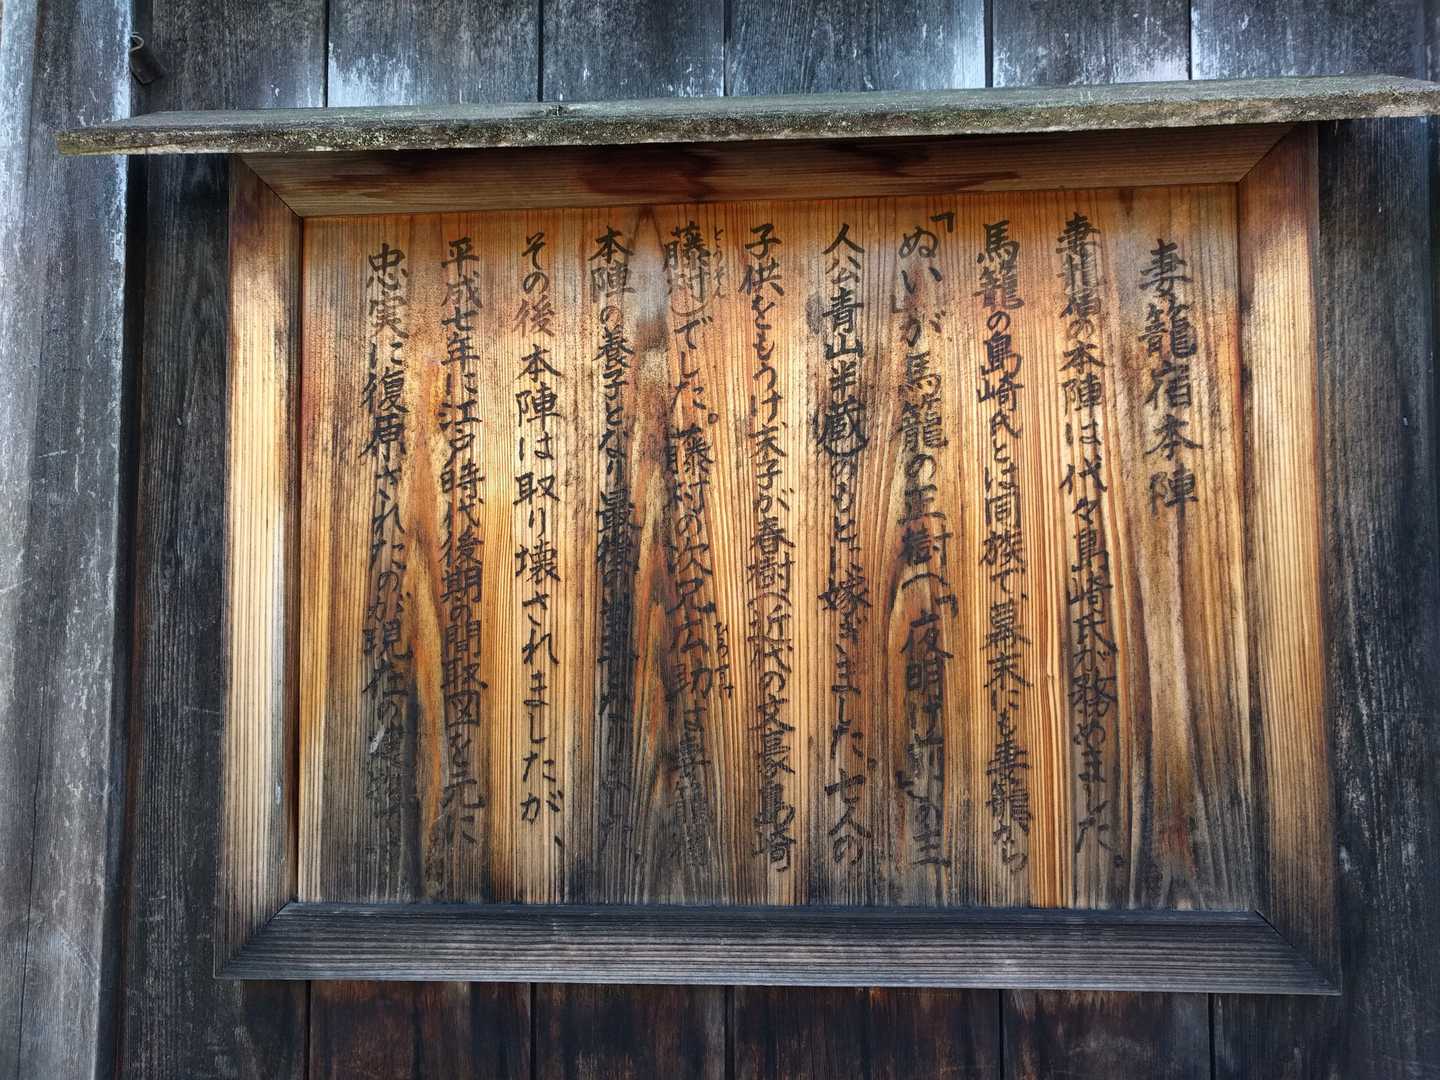 妻籠宿本陣
妻籠宿の本陣は代々島崎氏が務めました。
馬籠の島崎氏とは同族で、幕末にも妻籠から
「ぬい」が馬籠の正樹へ「夜明け前」の主
人公青山半蔵)のもとに嫁ぎました。七人の
子供をもうけ末子が春樹へ近代の文豪島崎
藤村)でした。藤村の次兄広助は妻籠宿
とうそん
ひろすけ
本陣の養子となり最後の当主になりました。
その後本陣は取り壊されましたが、
平成七年に江戸時代後期の間取図を元に
忠実に復原されたのが現在の建物です